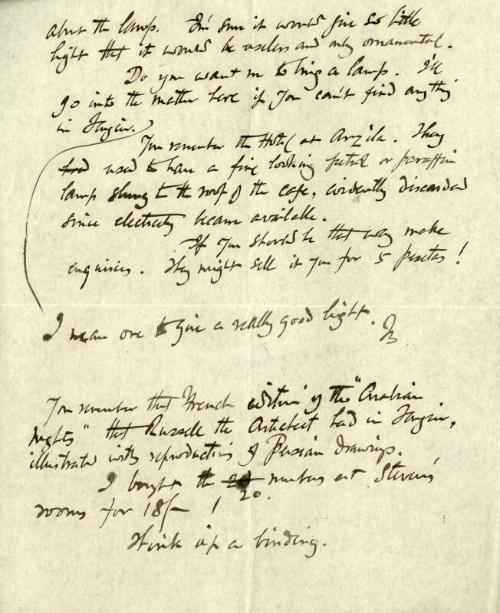 about the lamp. I'm sure it would give so little
light that it would be useless and only ornamental.
Do you want me to bring a lamp. I'll
go into the matter here if you can't find anything
in Tangier.
You remember the Hotel at Arzila. They
used to have a fine looking petrol or paraffin
lamp slung to the roof of the cafe, evidently discarded
since electricity became available.
If you should be that way make
enquiries. They might sell it you for 5 pesetas!
I mean one to give a really good light.
You remember that French edition of the "Arabian
Nights" that Russell the Architect had in Tangier,
illustrated with reproductions of Persian drawings.
I bought the 20 numbers at Stevens'
rooms for 18/- !
Think up a binding.